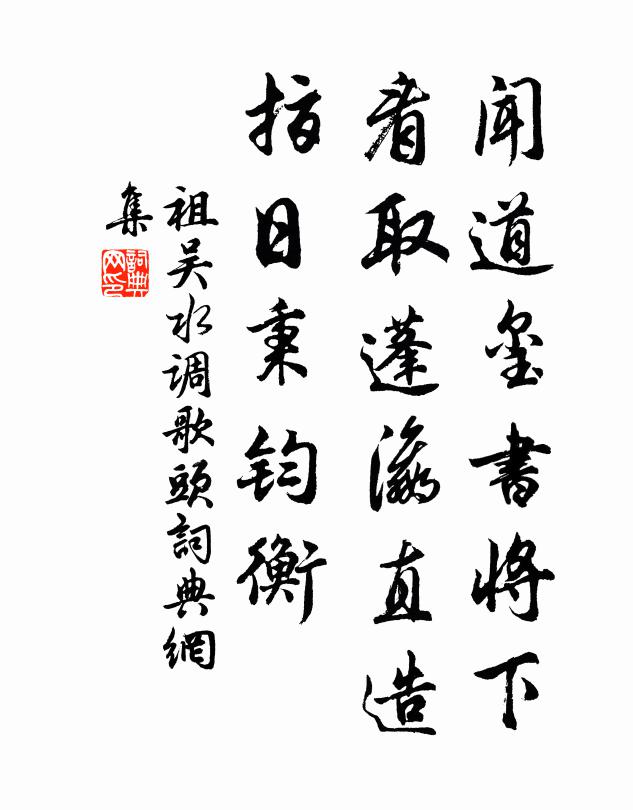 闻道玺書将下
看取蓬瀛直造
指日秉钧衡
祖吴水调歌頭詞典網
集
詞典
网印